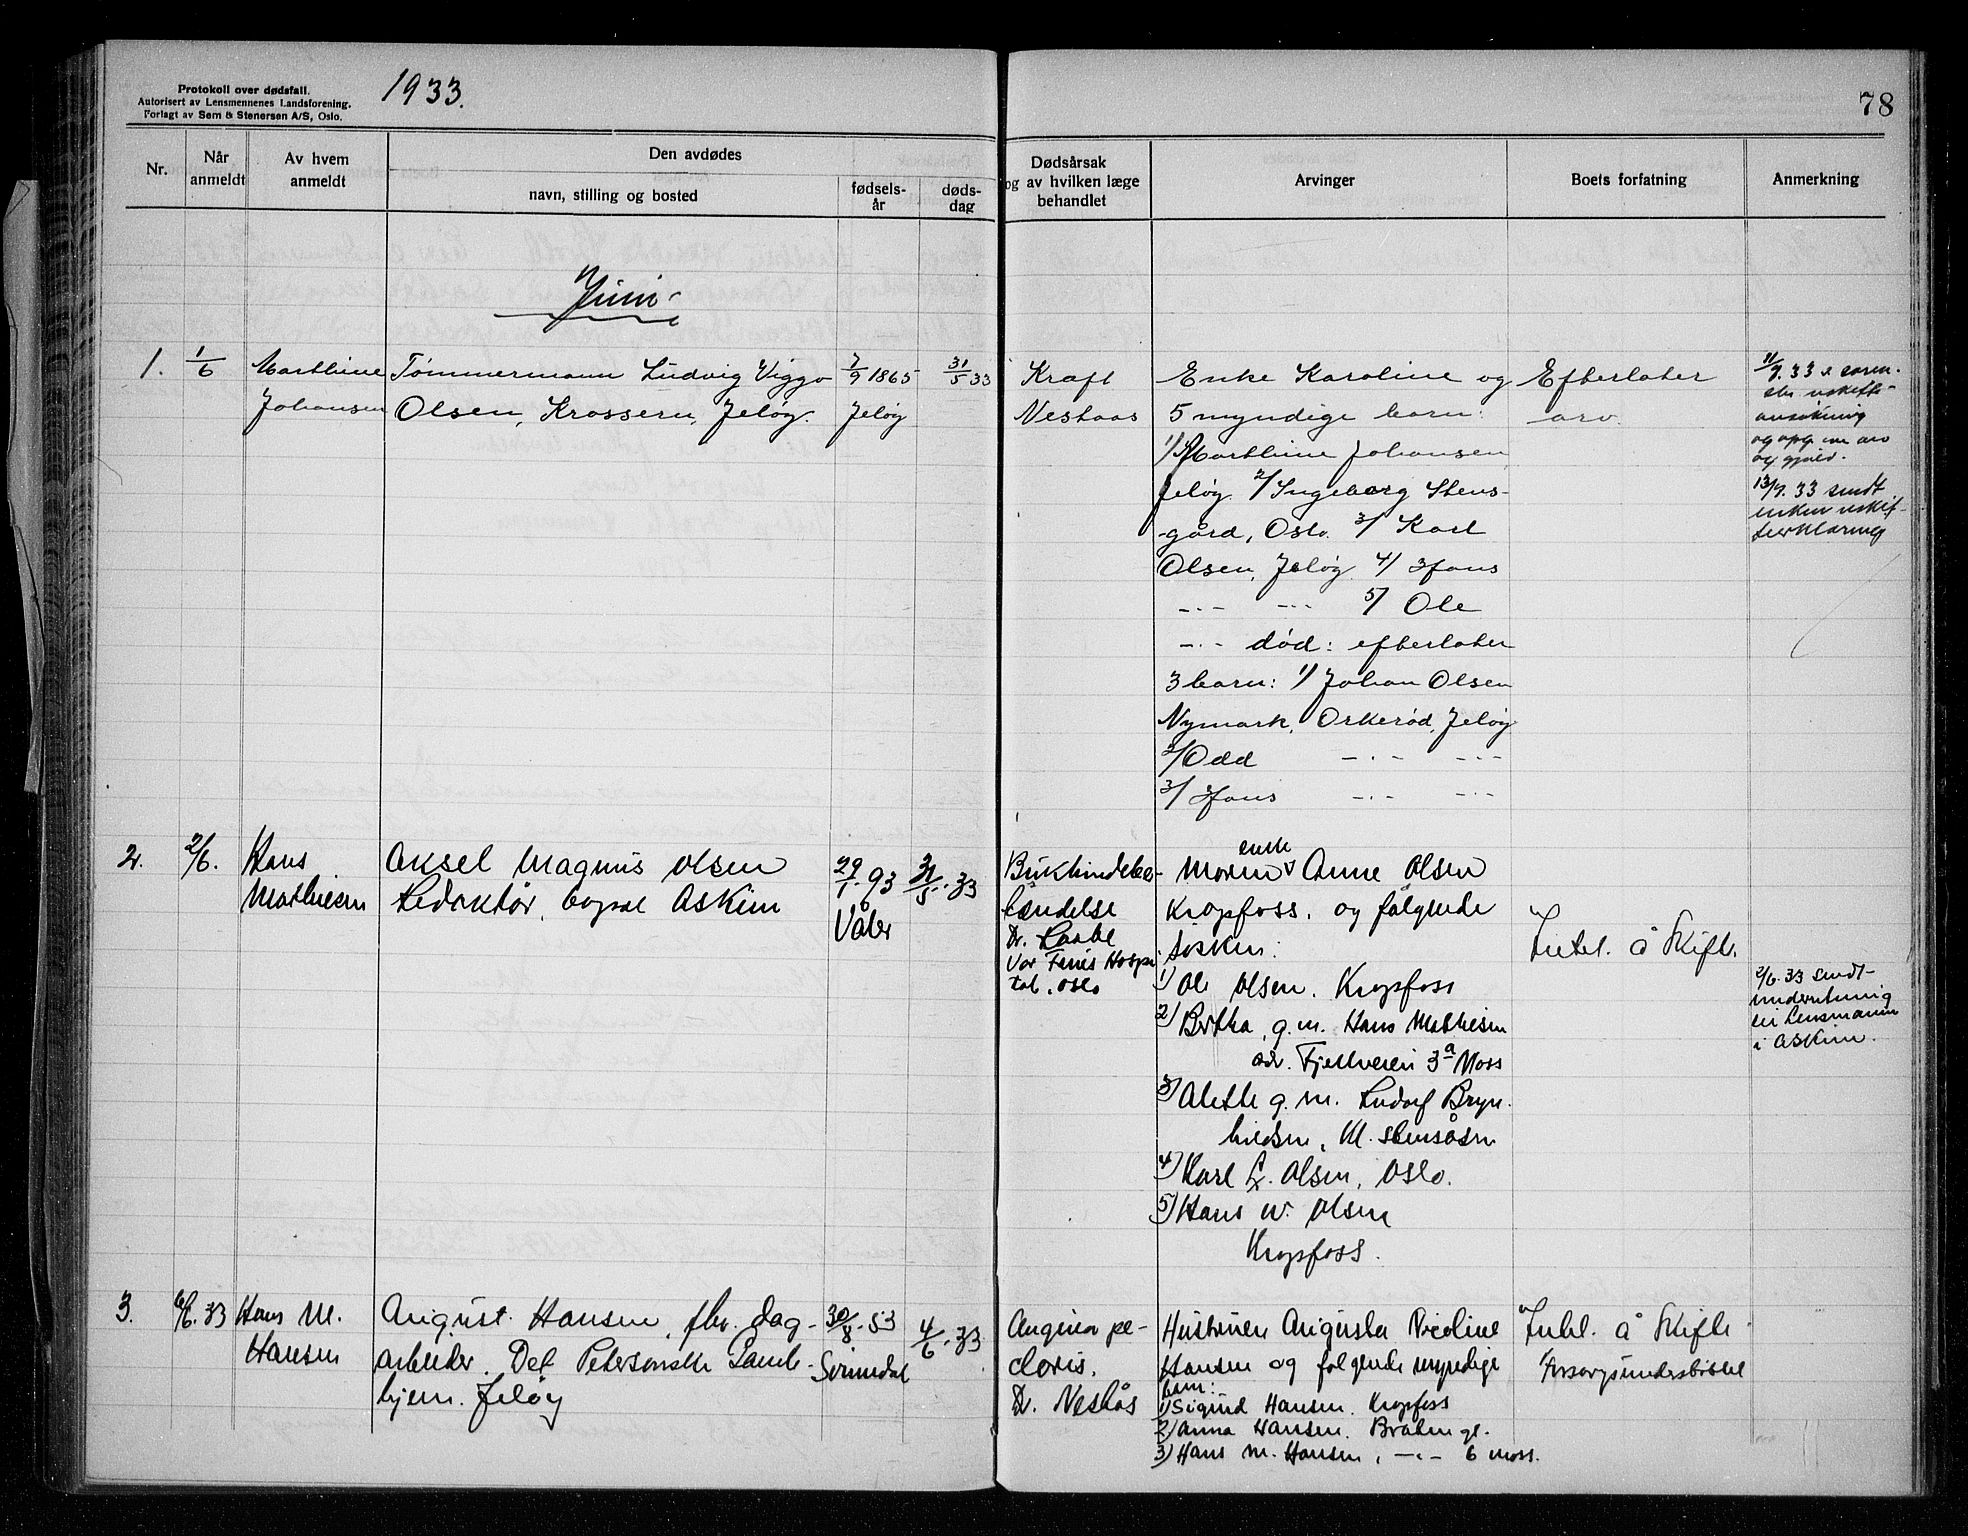 Protokoll over dødsfall.
Autorisert av Lensmennenes Landsforening.
Forlagt av Sem & Stenersen A/S, Oslo.
1933.
78
Nr.
Når anmeldt
Av hvem anmeldt
Den avdødes
navn, stilling og bosted
fødsels-år
døds-dag
Dødsårsak
og av hvilken læge
behandlet
Arvinger
Boets forfatning
Anmerkning
Juni
1.
1/6
Marthine
Johansen
Tømmermann Ludvig Viggo
Olsen, Krossern, Jeløy.
7/9 1865
Jeløy
31/5 33
Kraft
Nestaas
Enke Karoline og
5 myndige barn:
1/ Marthine Johansen
Jeløy. 2/ Ingeborg Stens-
gård, Oslo. 3/ Karl
Olsen, Jeløy. 4/ Hans
-·- -·- 5/ Ole
-·- død: efterlater
3 barn: 1/ Johan Olsen
Nymark, Orkerød, Jeløy
2/ Odd -·- -·-
3/ Hans -·- -·-
Efterlater
arv.
11/9.33 e soren-
skr uskifte-
ansøkning
og opg. om arv
og gjæld.
13/9.33 sendt
enken uskif-
teerklæring
2.
2/6.
Hans
Mathiesen
Aksel Magnus Olsen
Redaktør, bopæl Askim
29/1.93
Våler
31/5.33
Bukhindebe-
tændelse
Dr. Raabe
Vor Frues Hospi
tal, Oslo
Moren enke Anne Olsen
Kropfoss, og følgende
søsken:
1) Ole Olsen, Kropfoss
2) Bertha, g.m. Hans Mathiesen
adr. Fjellveien 3a Moss
3) Alette g.m. Ludolf Bryn-
hildsen, M. Stensåsen
4) Karl L. Olsen, Oslo.
5) Hans W. Olsen
Kropfoss.
Intet å skifte.
2/6.33 sendt
underretning
til Lensmannen
i Askim.
3.
6/6.33
Hans M.
Hansen
August Hansen, fhv. dag-
arbeider. Det Petersonske Gamle
hjem. Jeløy
30/8.53
Svinndal
4/6.33
Angina pe-
ctoris.
Dr. Neshås
Hustruen Augusta Nicoline
Hansen og følgende myndige
barn:
1) Sigurd Hansen. Kropfoss
2) Anna Hansen. Braten gt.
3) Hans M. Hansen, -·- 6 Moss.
Intet å skifte
Forsorgsunderstøttet